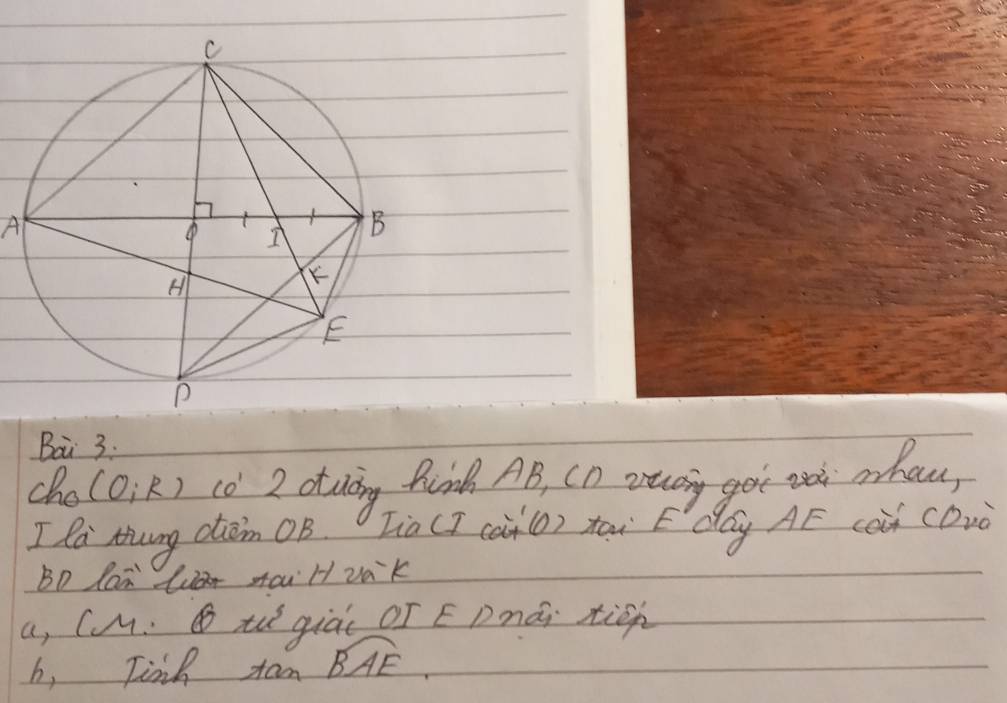 C
A O I B
H K
E
D
Bài 3:
Cho (O;R) có 2 đường kính AB, CD vuông góc với nhau,
I là trung điểm OB. Tia CI cắt (O) tại E dây AE cắt CD và
BD lần lượt tại H và K
a, CM: tứ giác OIED nội tiếp
b, Tính tan BAE.